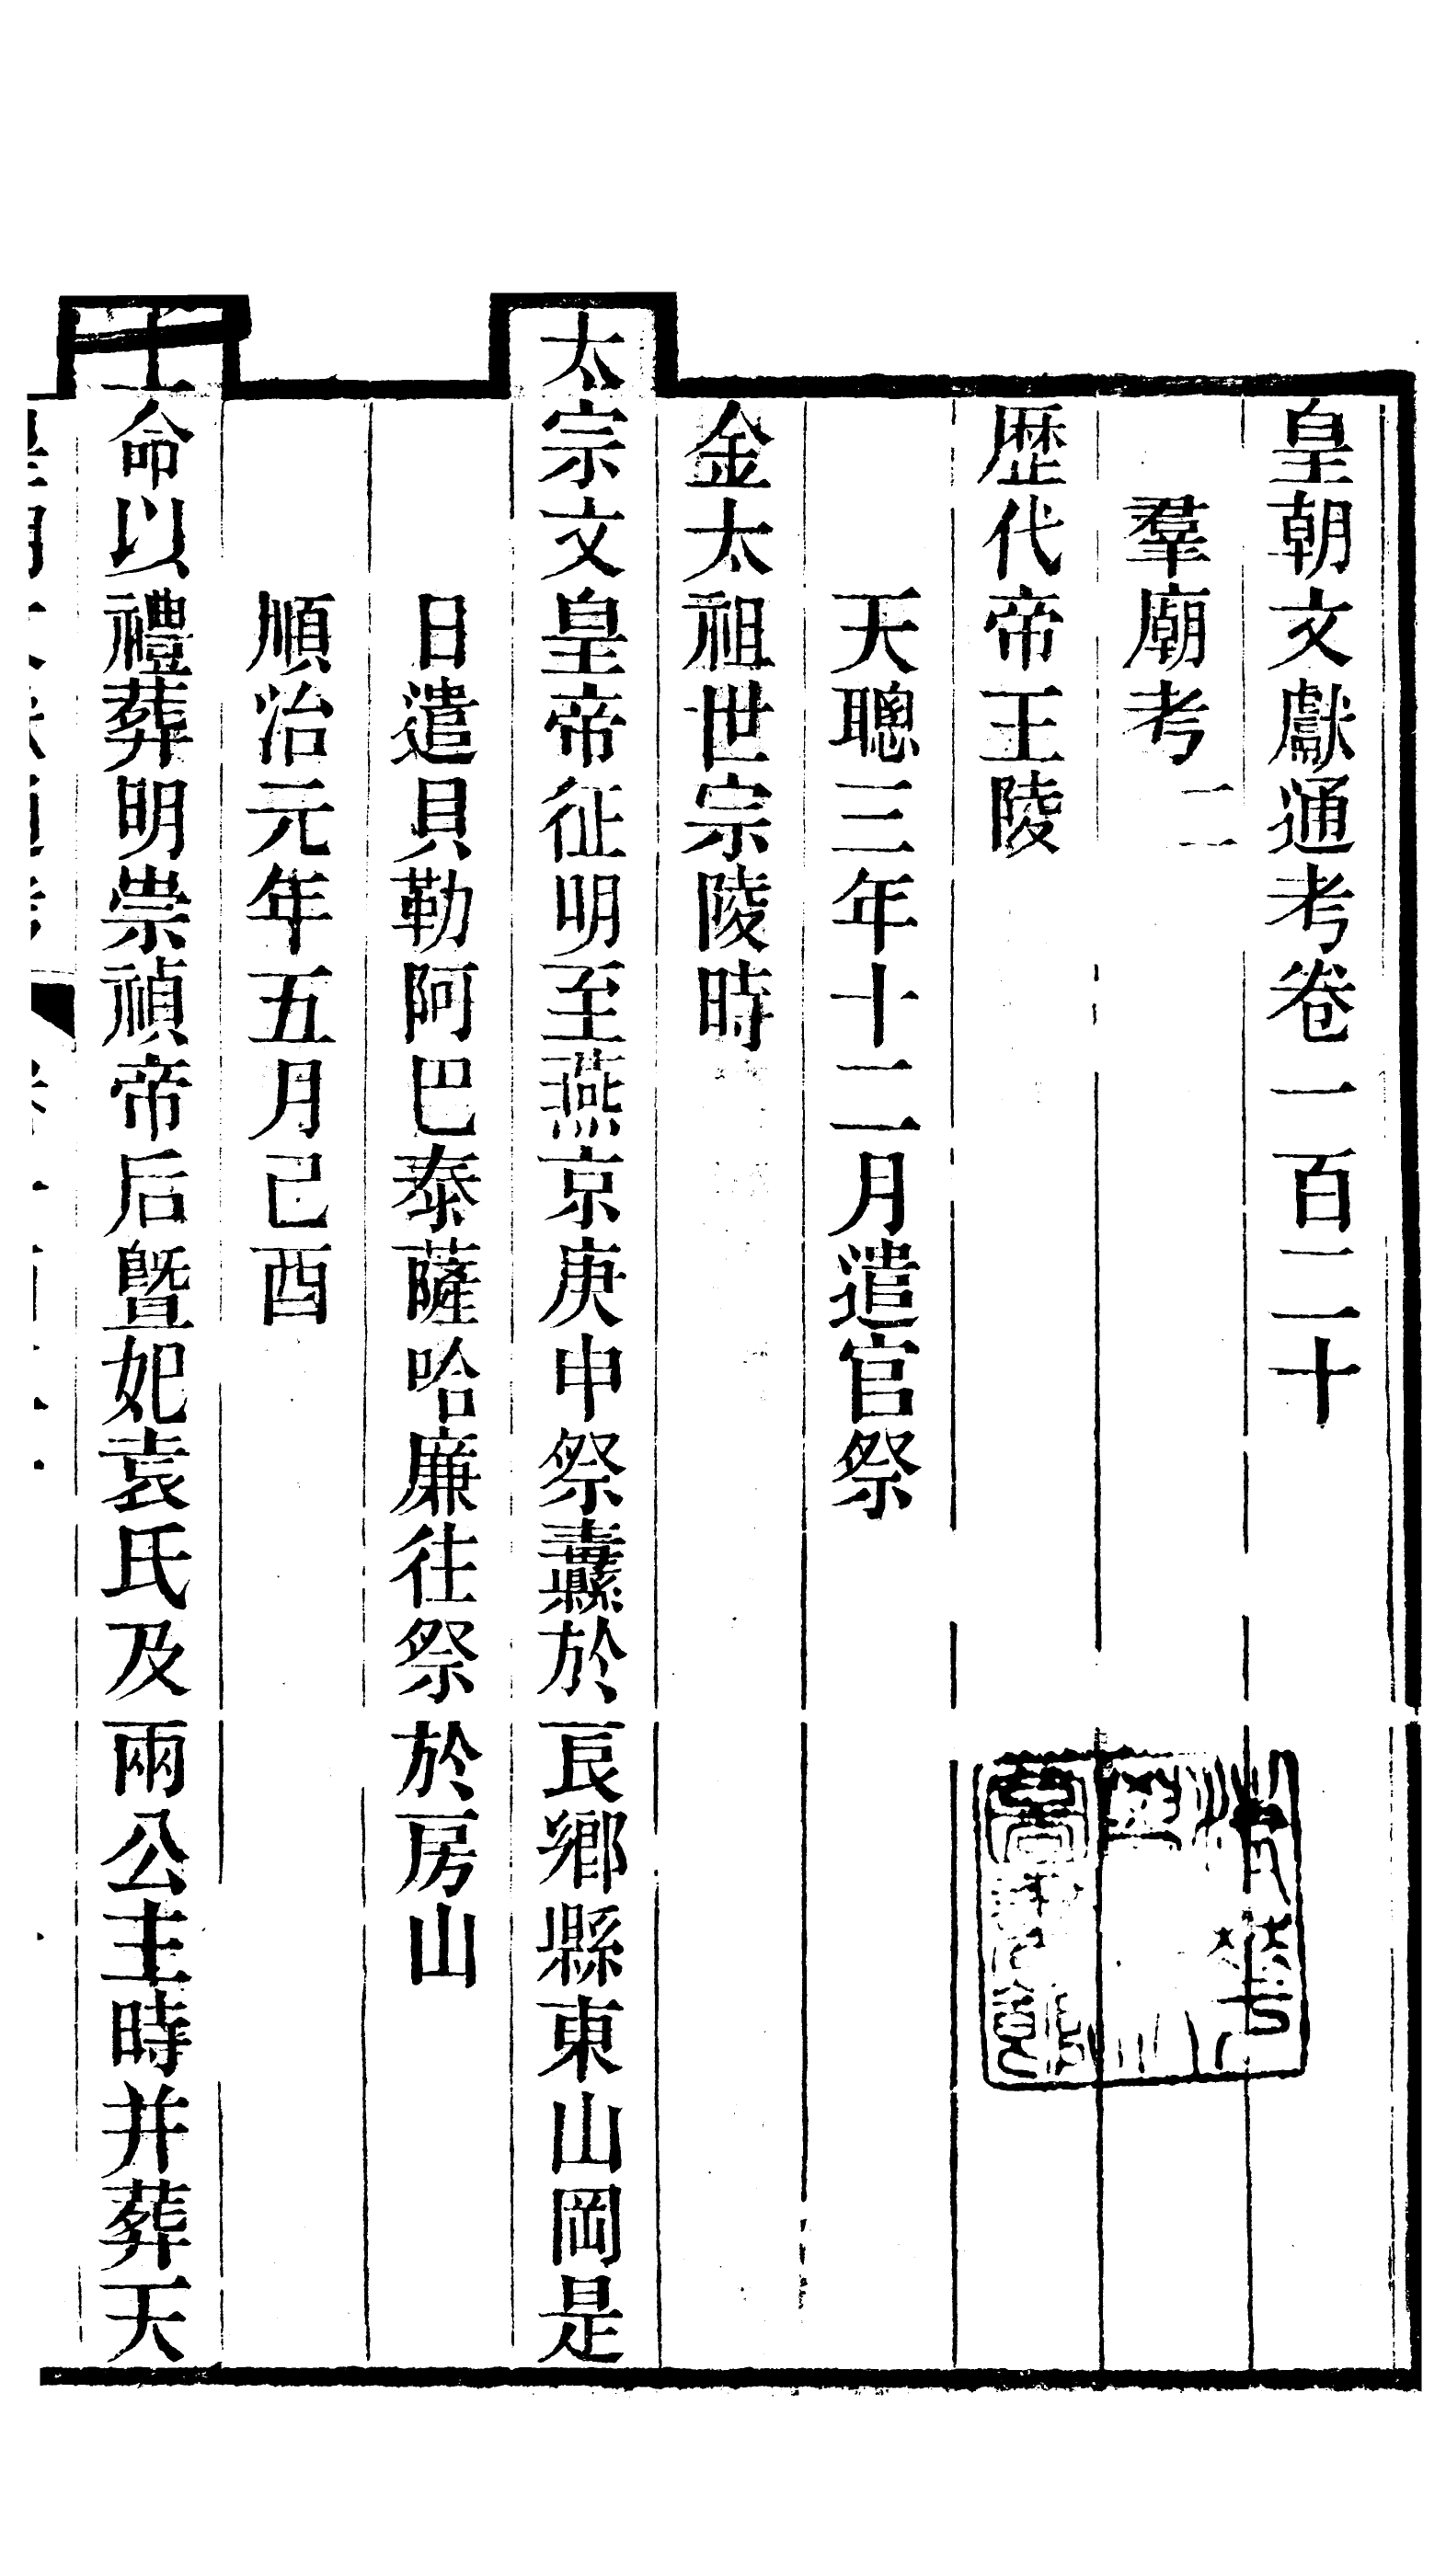 皇朝文獻通考卷一百二十
羣廟考二
歷代帝王陵
天聰三年十二月遣官祭
金太祖世宗陵時
太宗文皇帝征明至燕京庚申祭纛於良鄉縣東山岡是
日遣貝勒阿巴泰薩哈廉往祭於房山
順治元年五月己酉
上命以禮葬明崇禎帝后曁妃袁氏及兩公主時并葬天